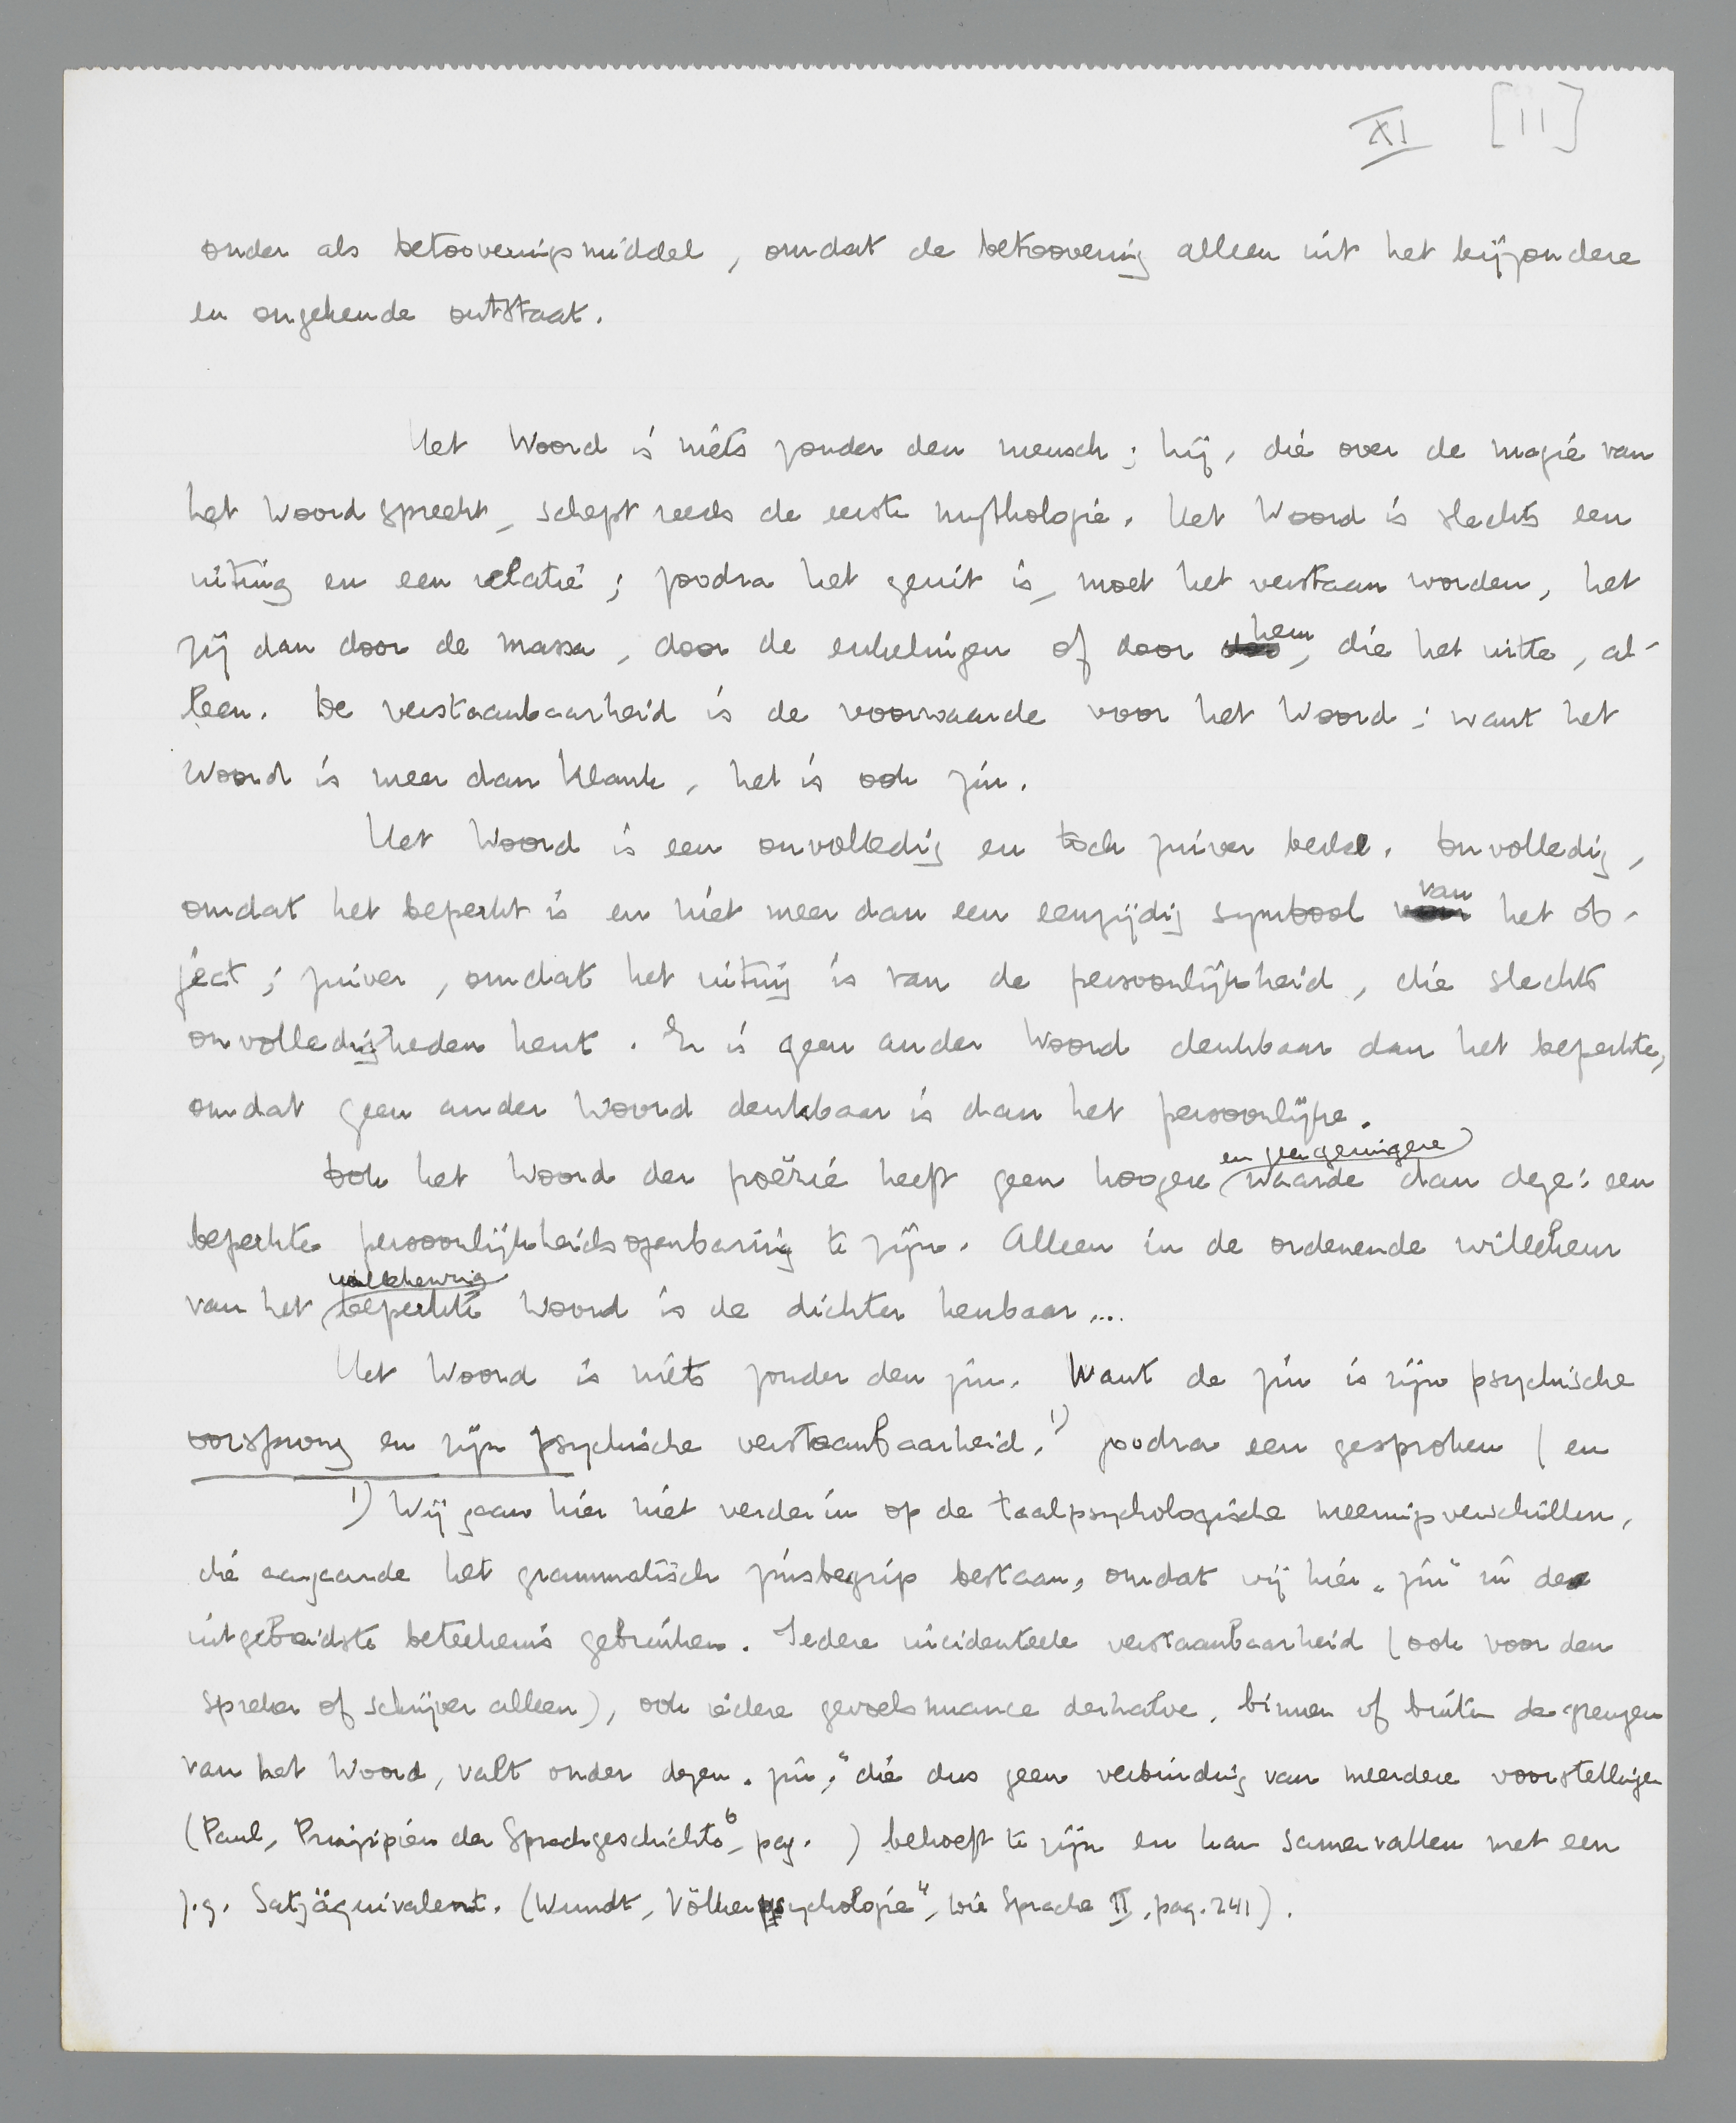 XI [11]
onder als betooveringsmiddel, omdat de betoovering alleen uit het bijzondere
en ongekende ontstaat.
Het Woord is niets zonder den mensch; hij, die over de magie van
het Woord spreekt, schept reeds de eerste mythologie. Het Woord is slechts een
uiting en een relatie; zoodra het geuit is, moet het verstaan worden, het
zij dan door de massa, door de enkelingen of door hem, die het uitte, al-
leen. De verstaanbaarheid is de voorwaarde voor het Woord; want het
Woord is meer dan klank, het is ook zin.
Het Woord is een onvolledig en toch zuiver beeld. Onvolledig,
omdat het beperkt is en niet meer dan een eenzijdig symbool van het ob-
ject; zuiver, omdat het uiting is van de persoonlijkheid, die slechts
onvolledigheden kent. Er is geen ander Woord denkbaar dan het beperkte,
omdat geen ander Woord denkbaar is dan het persoonlijke.
Ook het Woord der poëzie heeft geen hoogere en geen geringere waarde dan deze: een
beperkte persoonlijkheidsopenbaring te zijn. Alleen in de ordenende willekeur
van het willekeurig beperkte Woord is de dichter kenbaar....
Het Woord is niets zonder den zin. Want de zin is zijn psychische
oorsprong en zijn psychische verstaanbaarheid. 1) Zoodra een gesproken (en
1) Wij gaan hier niet verder in op de taalpsychologische meeningsverschillen,
die aangaande het grammatisch zinsbegrip bestaan, omdat wij hier „zin" in de
uitgebreidste beteekenis gebruiken. Iedere incidenteele verstaanbaarheid (ook voor den
spreker of schrijver alleen), ook iedere gevoelsnuance derhalve, binnen of buiten de grenzen
van het Woord, valt onder dezen „zin," die dus geen verbinding van meerdere voorstellingen
(Paul, Prinzipien der Sprachgeschichte 6, pag. ) behoeft te zijn en kan samenvallen met een
z.g. Satzäquivalent. (Wundt, Völkerpsychologie 4, Die Sprache II, pag. 241).